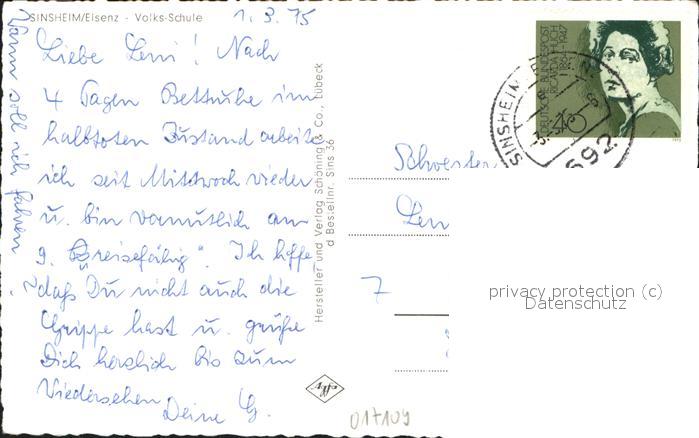 SINSHEIM/Elsenz - Volks-Schule
1. 3. 75
Liebe Leni! Nach
4 Tagen Bettruhe im
halbtoten Zustand arbeite
ich seit Mittwoch wieder
u. bin vermutlich am
9. "reisefähig". Ich hoffe
daß Du nicht auch die
Grippe hast u. grüße
Dich herzlich bis zum
Wiedersehen
Deine G.
Wann soll ich fahren?
Hersteller und Verlag Schöning & Co., Lübeck
d Bestellnr. Sins 36
Schwester
Leni
7
017109
DEUTSCHE BUNDESPOST
RICARDA HUCH
1864-1947
40
SINSHEIM
692
privacy protection (c)
Datenschutz